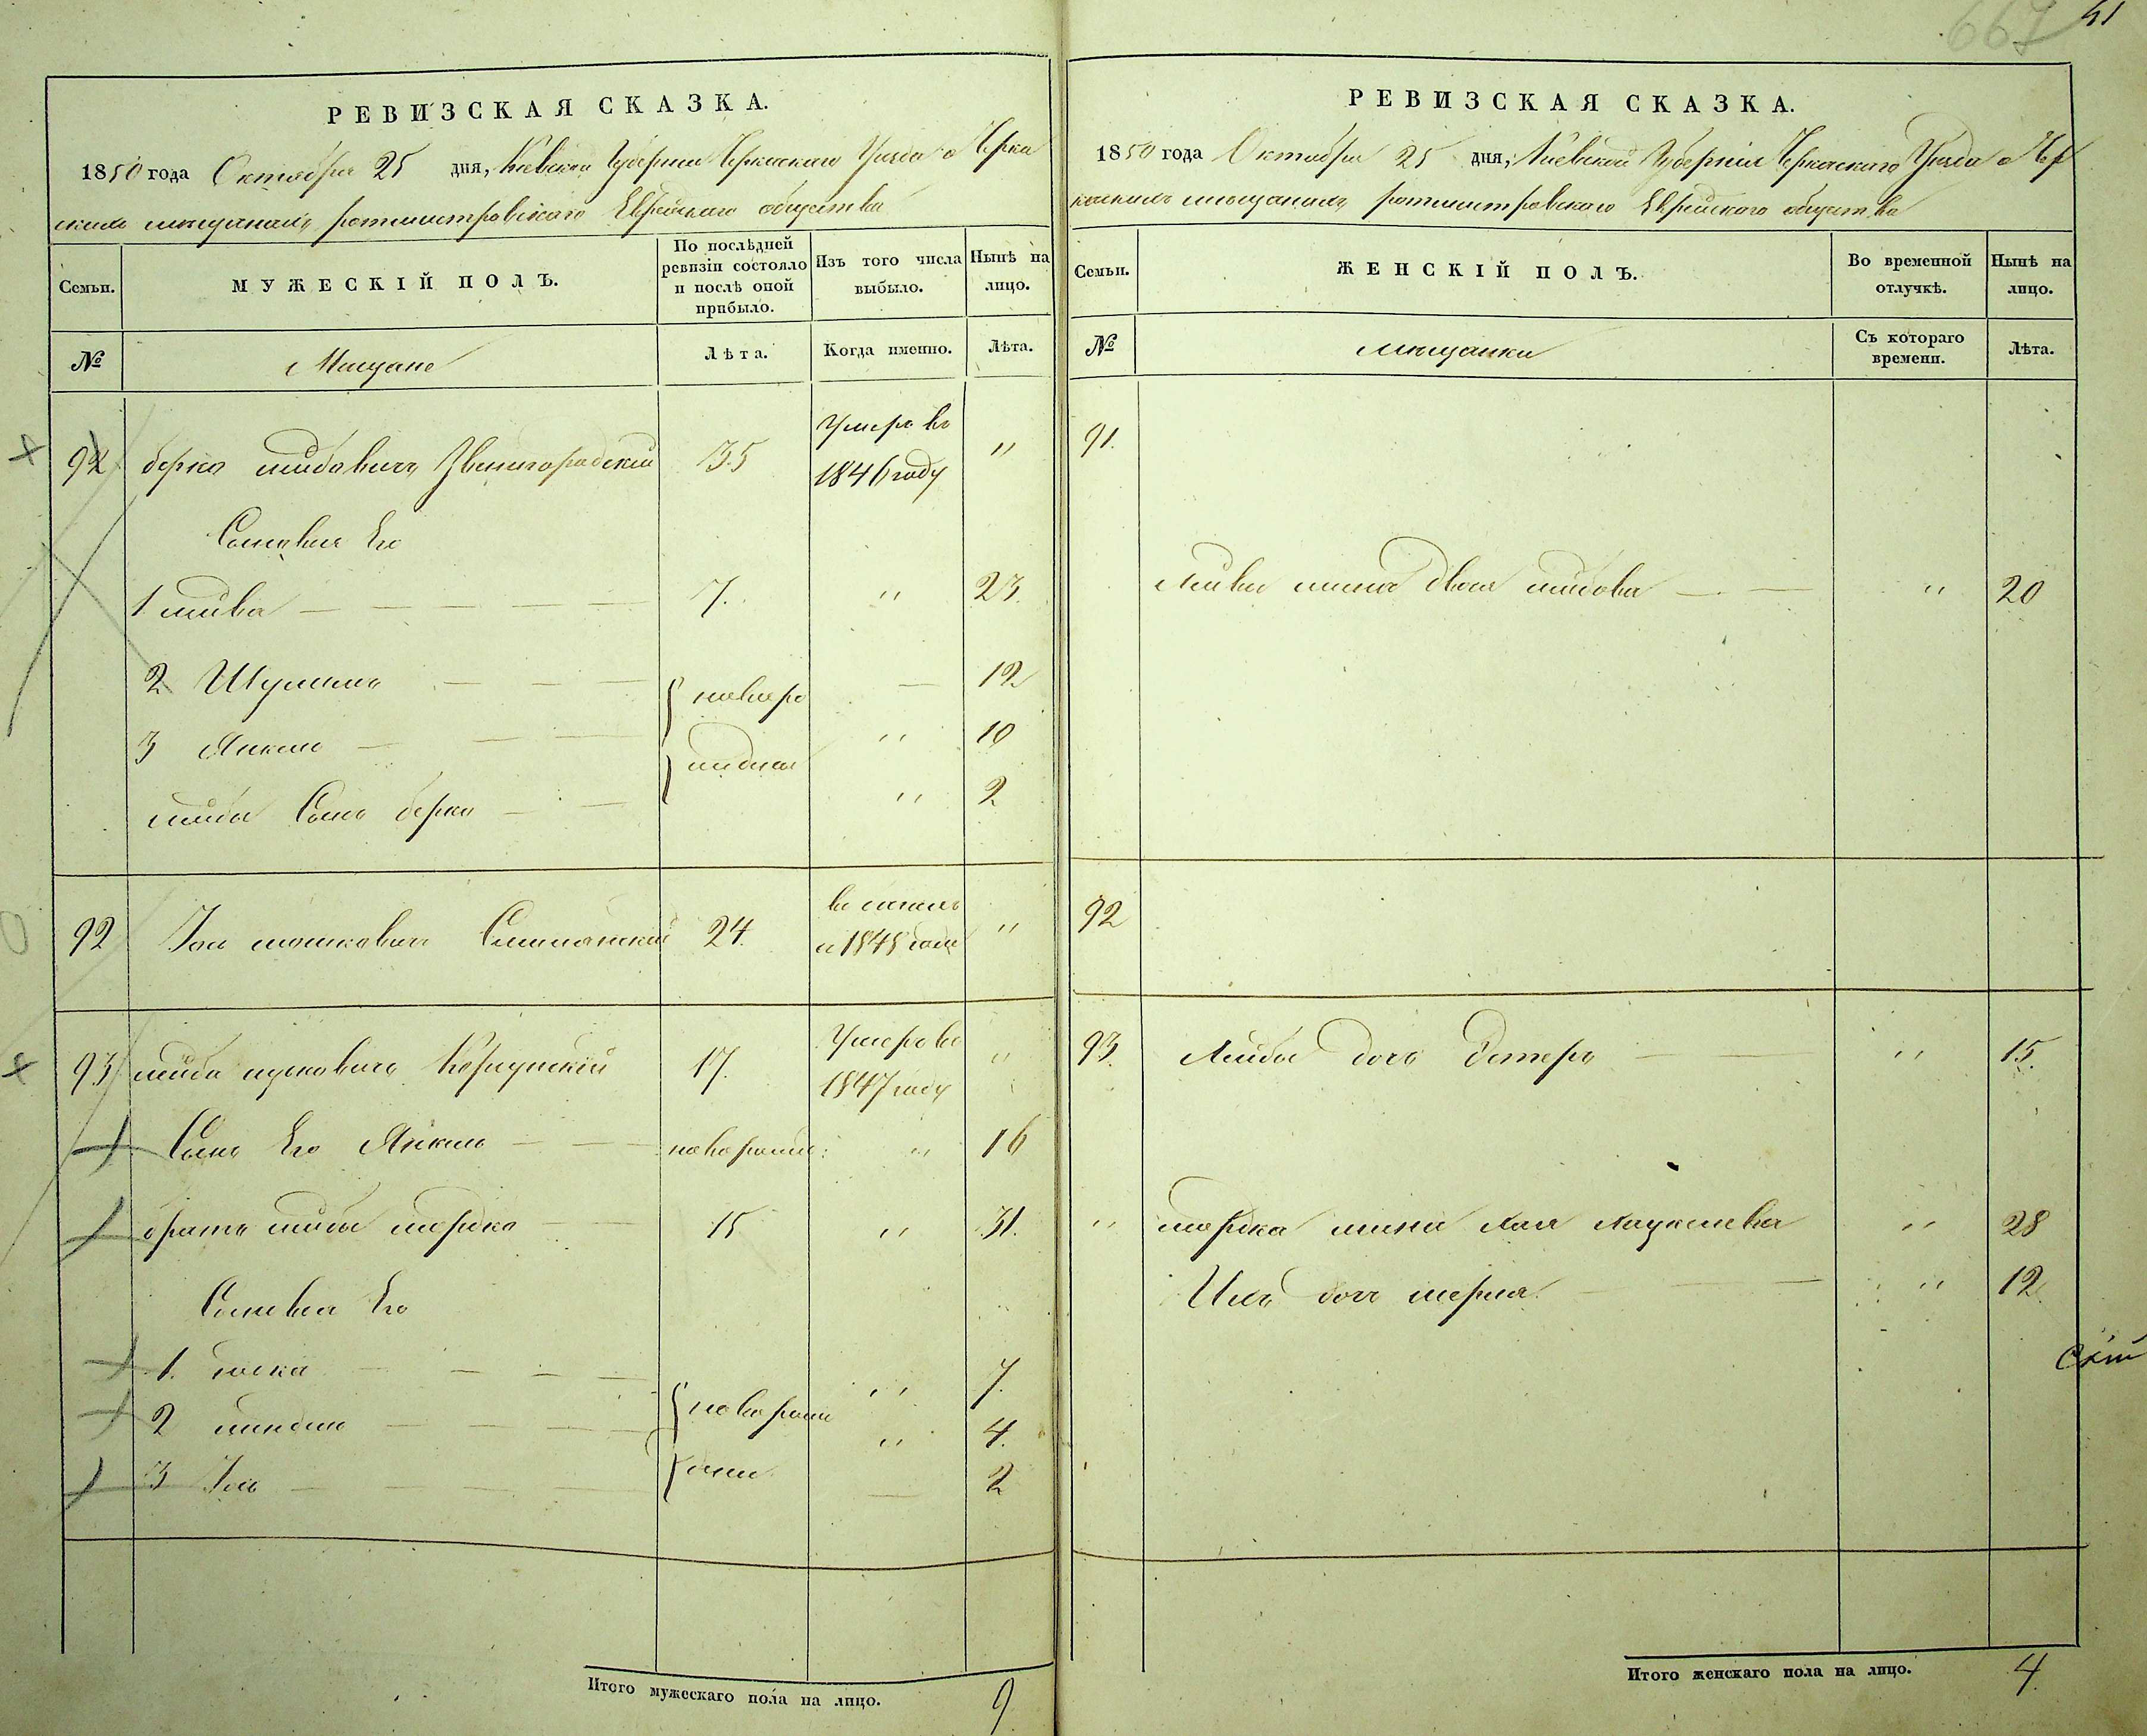 667 41
РЕВИЗСКАЯ СКАЗКА.
1850 года Октября 25 дня, Кіевской Губерніи Черкаскаго Уезда о Черка
скихъ мещанахъ ротмистровскаго Еврейскаго общества
Семьи.
МУЖЕСКІЙ ПОЛЪ.
По послѣдней ревизіи состояло и послѣ оной прибыло.
Изъ того числа выбыло.
Нынѣ на лицо.
№
Мещане
Лѣта.
Когда именно.
Лѣта.
91 берко лейбовичъ Звенигородскій 35 Умеръ въ 1846 году "
Сыновья Его
1 лейба 7. " 23
2 Шулимъ 12
3 Янкель 10
новоро
жденные
лейбы Сынъ берко " 2
92 Іось мошковичъ 24. въ 1848 года "
93 лейба ицковичъ Корсунскій 17. Умеръ въ 1847 году "
Сынъ Его Янкель новорожд: " 16
братъ лейбы мордко 15 " 31.
Сыновья Его
1. " 7.
2 " 4.
3 Іось 2
новорож
дены
Итого мужескаго пола на лицо. 9
РЕВИЗСКАЯ СКАЗКА.
1850 года Октября 25 дня, Кіевской Губерніи Черкаскаго Уезда о Чер
каскихъ мещанахъ ротмистровскаго Еврейскаго общества
Семьи.
ЖЕНСКІЙ ПОЛЪ.
Во временной отлучкѣ.
Нынѣ на лицо.
№
мещанки
Съ котораго времени.
Лѣта.
91.
Лейбы жена Двося лейбова " 20
92
93. Лейбы дочь Эстеръ " 15.
" мордка жена Хая " 28
Ихъ дочь " 12
скій
Итого женскаго пола на лицо. 4.